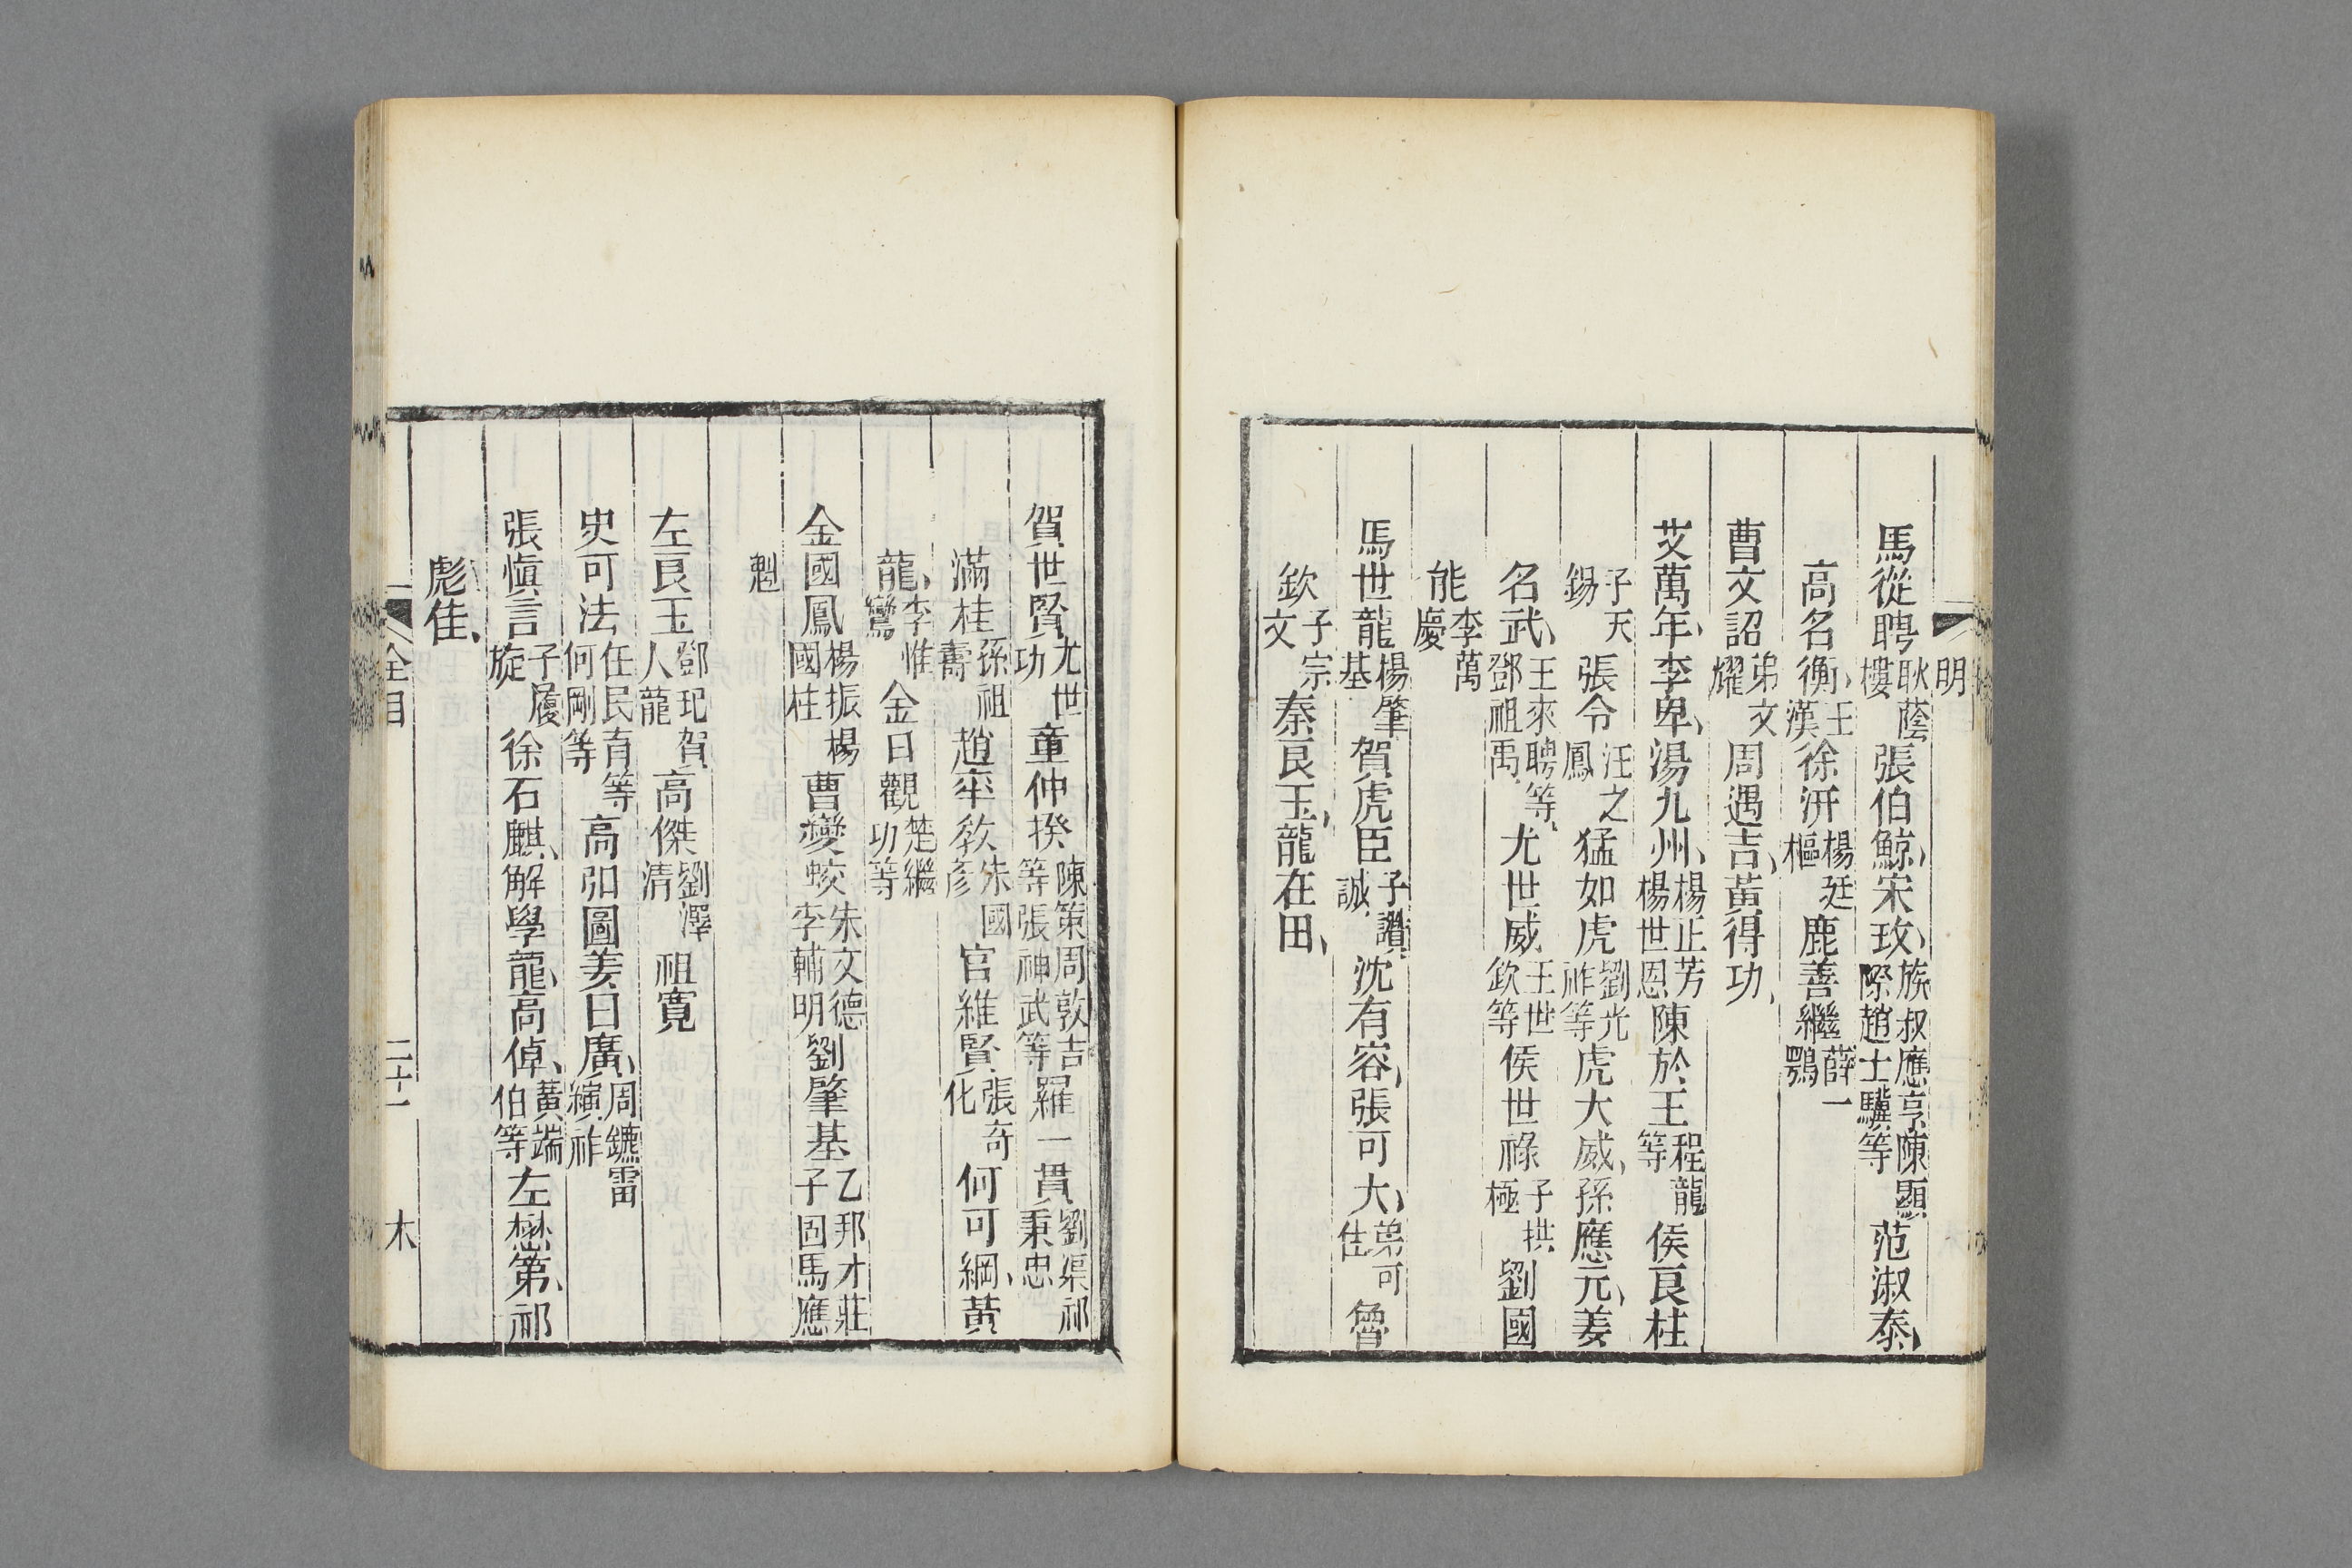 明
馬從聘耿蔭樓張伯鯨、宋玫、族叔應亨陳顯際趙士驥等范淑泰、
高名衡、王漢徐汧楊廷樞鹿善繼薛一鶚
曹文詔弟文耀周遇吉、黃得功、
艾萬年、李卑、湯九州、楊正芳楊世恩陳於王程龍等侯良柱
子天錫張令汪之鳳猛如虎劉光祚等虎大威、孫應元、姜
名武、王來聘等、鄧祖禹、尤世威王世欽等侯世祿子拱極劉國
能李萬慶
馬世龍楊肇基賀虎臣子讚誠、沈有容、張可大、弟可仕魯
欽子宗文秦良玉、龍在田、
賀世賢尤世功童仲揆陳策周敦吉等張神武等羅一貫劉渠祁秉忠
滿桂孫祖壽趙率教朱國彥官維賢張奇化何可綱、黃
龍、李惟鸞金日觀楚繼功等
金國鳳楊振楊國柱曹變蛟朱文德李輔明劉肇基乙邦才莊子固馬應
魁
左良玉鄧玘賀人龍高傑劉澤清祖寬
史可法任民育等何剛等高弘圖姜曰廣、周鑣雷縯祚
張慎言子履旋徐石麒、解學龍、高倬、黃端伯等左懋第、祁
彪佳、
全目 二十一 木